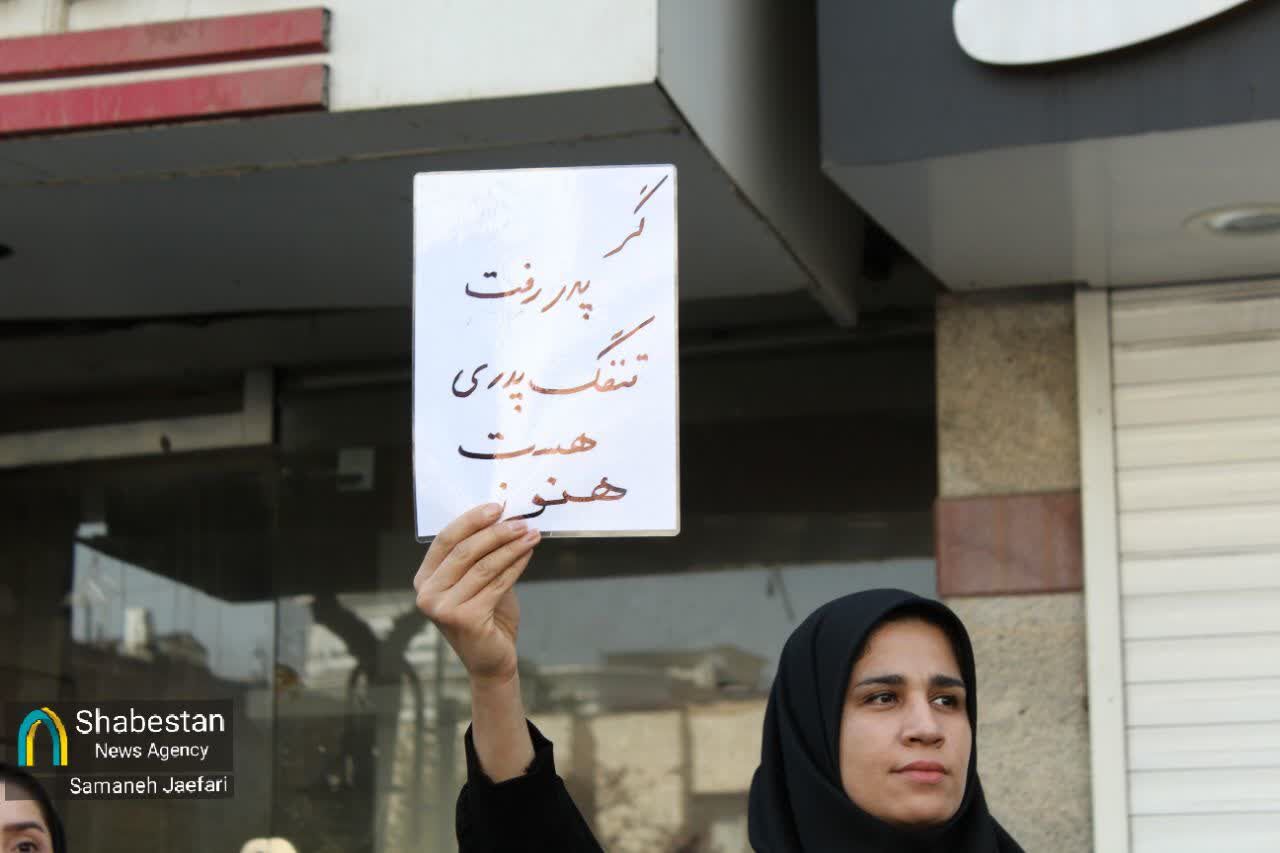 گر
پدر رفت
تفنگ پدری
هست
هنوز
Shabestan
News Agency
Samaneh Jaefari